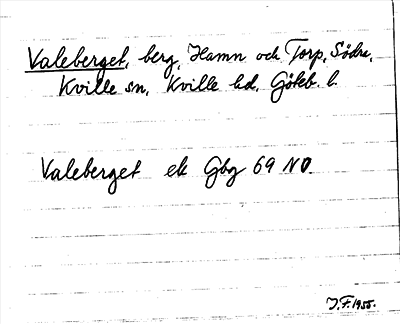 Valeberget, berg, Hamn och Torp, Södra,
Kville sn, Kville hd, Göteb. l.
Valeberget ek Gbg 69 NO.
J.F. 1955.